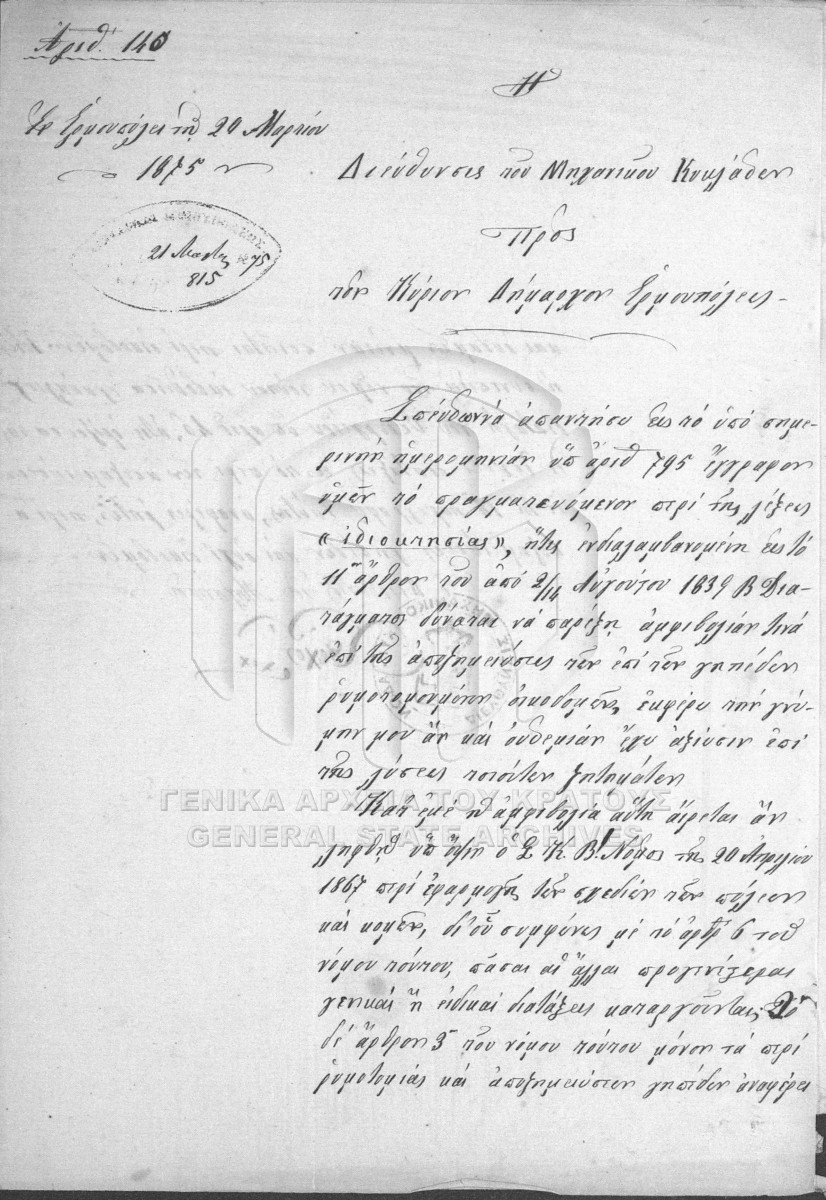 Αριθ. 140
Ἐν Ἑρμουπόλει τῇ 20 Μαρτίου
1875
21 Μαρτ 75
815
Ἡ
Διεύθυνσις του Μηχανικου Κυκλάδων
Πρὸς
τὸν Κύριον Δήμαρχον Ἑρμουπόλεως
Σπεύδων νὰ ἀπαντήσω εἰς τὸ ὑπὸ σημε-
ρινὴν ἡμερομηνίαν ὑπ' ἀριθ 795 ἔγγραφον
ὑμῶν τὸ πραγματευόμενον περὶ τῆς λέξεως
«ἰδιοκτησίας», ἥτις ἐνδιαλαμβανομένη εἰς τὸ
11ον ἄρθρον τοῦ ἀπὸ 2/14 Αὐγούστου 1839 Β Δια-
τάγματος δύναται νὰ παρέξῃ ἀμφιβολίαν τινὰ
ἐπὶ τῆς ἀποζημειώσεως τῶν ἐπὶ τῶν γηπέδων
ῥυμοτομουμένων οἰκοδομῶν, ἐκφέρω τὴν γνώ-
μην μου ἂν καὶ οὐδεμίαν ἔχω ἀξίωσιν ἐπὶ
τῆς λύσεως τοιούτων ζητημάτων
Κατ' ἐμὲ ἡ ἀμφιβολία αὕτη αἴρεται ἂν
ληφθῇ ὑπ' ὄψιν ὁ Σ Κ Β' Νόμος τῆς 20 Ἀπριλίου
1867 περὶ ἐφαρμογῆς τῶν σχεδίων τῶν πόλεων
καὶ κομῶν, δι' οὗ συμφώνως μὲ τὸ ἄρθρ 6 τοῦ
νόμου τούτου, πᾶσαι αἱ ἄλλαι προγενέστεραι
γενικαὶ ἢ εἰδικαὶ διατάξεις καταργοῦνται. Τὸ
δὲ ἄρθρον 3ον τοῦ νόμου τούτου μόνον τὰ περὶ
ῥυμοτομίας καὶ ἀποζημειώσεων γηπέδων ἀναφέρει
ΓΕΝΙΚΑ ΑΡΧΕΙΑ ΤΟΥ ΚΡΑΤΟΥΣ
GENERAL STATE ARCHIVES